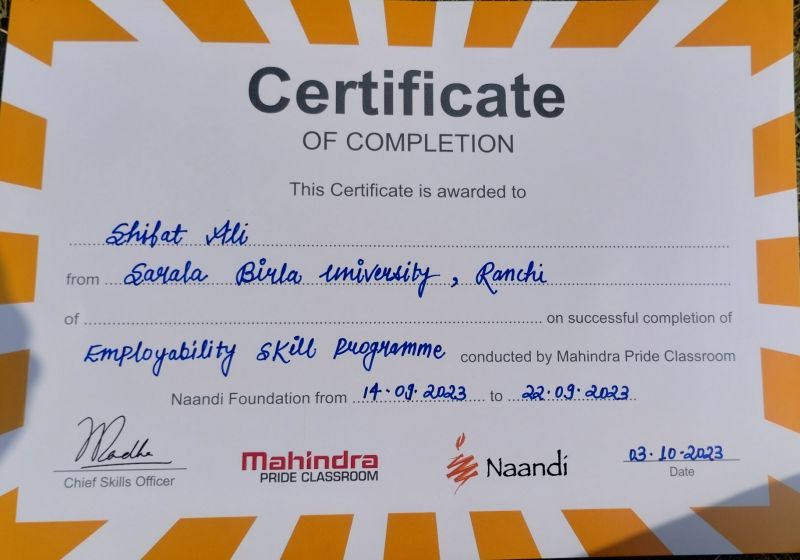 Certificate
OF COMPLETION
This Certificate is awarded to
Shifat Ali
from Sarala Birla University, Ranchi
of on successful completion of
Employability Skill Programme conducted by Mahindra Pride Classroom
Naandi Foundation from 14.09.2023 to 22.09.2023
Chief Skills Officer
Mahindra
PRIDE CLASSROOM
Naandi
03.10.2023
Date